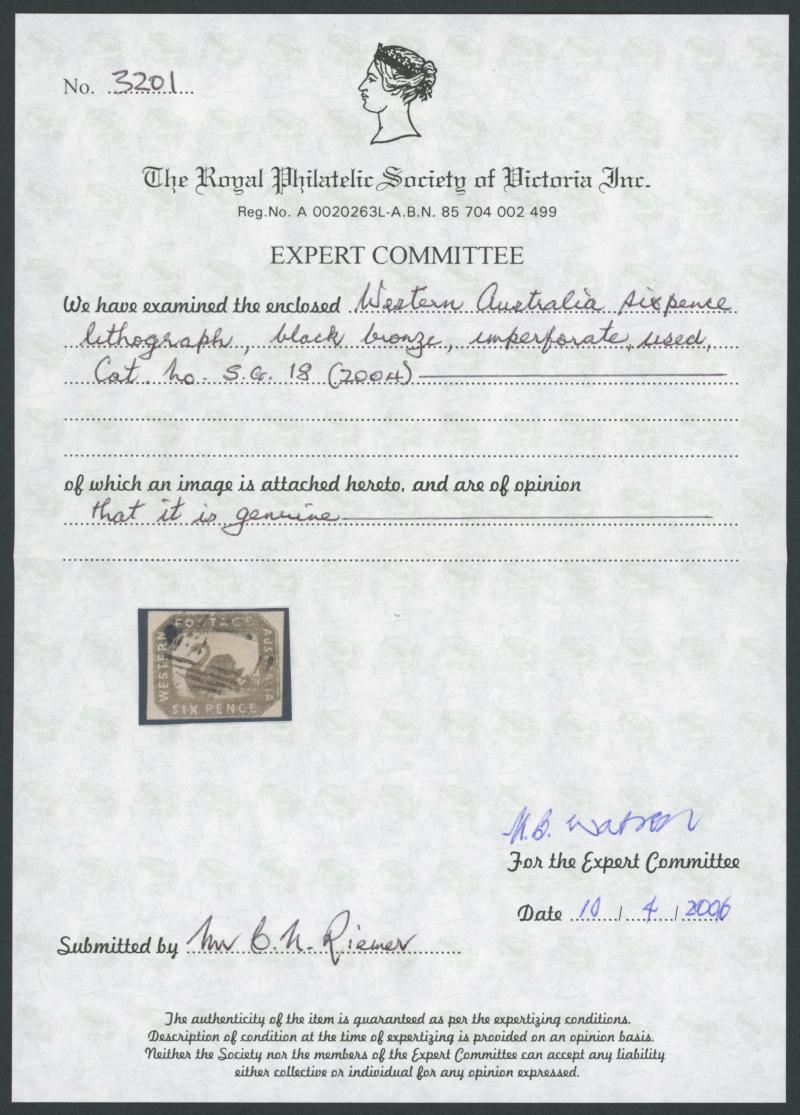 No. 3201
The Royal Philatelic Society of Victoria Inc.
Reg.No. A 0020263L-A.B.N. 85 704 002 499
EXPERT COMMITTEE
We have examined the enclosed Western Australia sixpence
lithograph, black bronze, imperforate, used,
Cat. No. S.G. 18 (2004)
of which an image is attached hereto, and are of opinion
that it is genuine
POSTAGE
WESTERN
AUSTRALIA
SIX PENCE
M.B. Watson
For the Expert Committee
Date 10 / 4 / 2006
Submitted by Mr B. N. Riemer
The authenticity of the item is guaranteed as per the expertizing conditions.
Description of condition at the time of expertizing is provided on an opinion basis.
Neither the Society nor the members of the Expert Committee can accept any liability
either collective or individual for any opinion expressed.